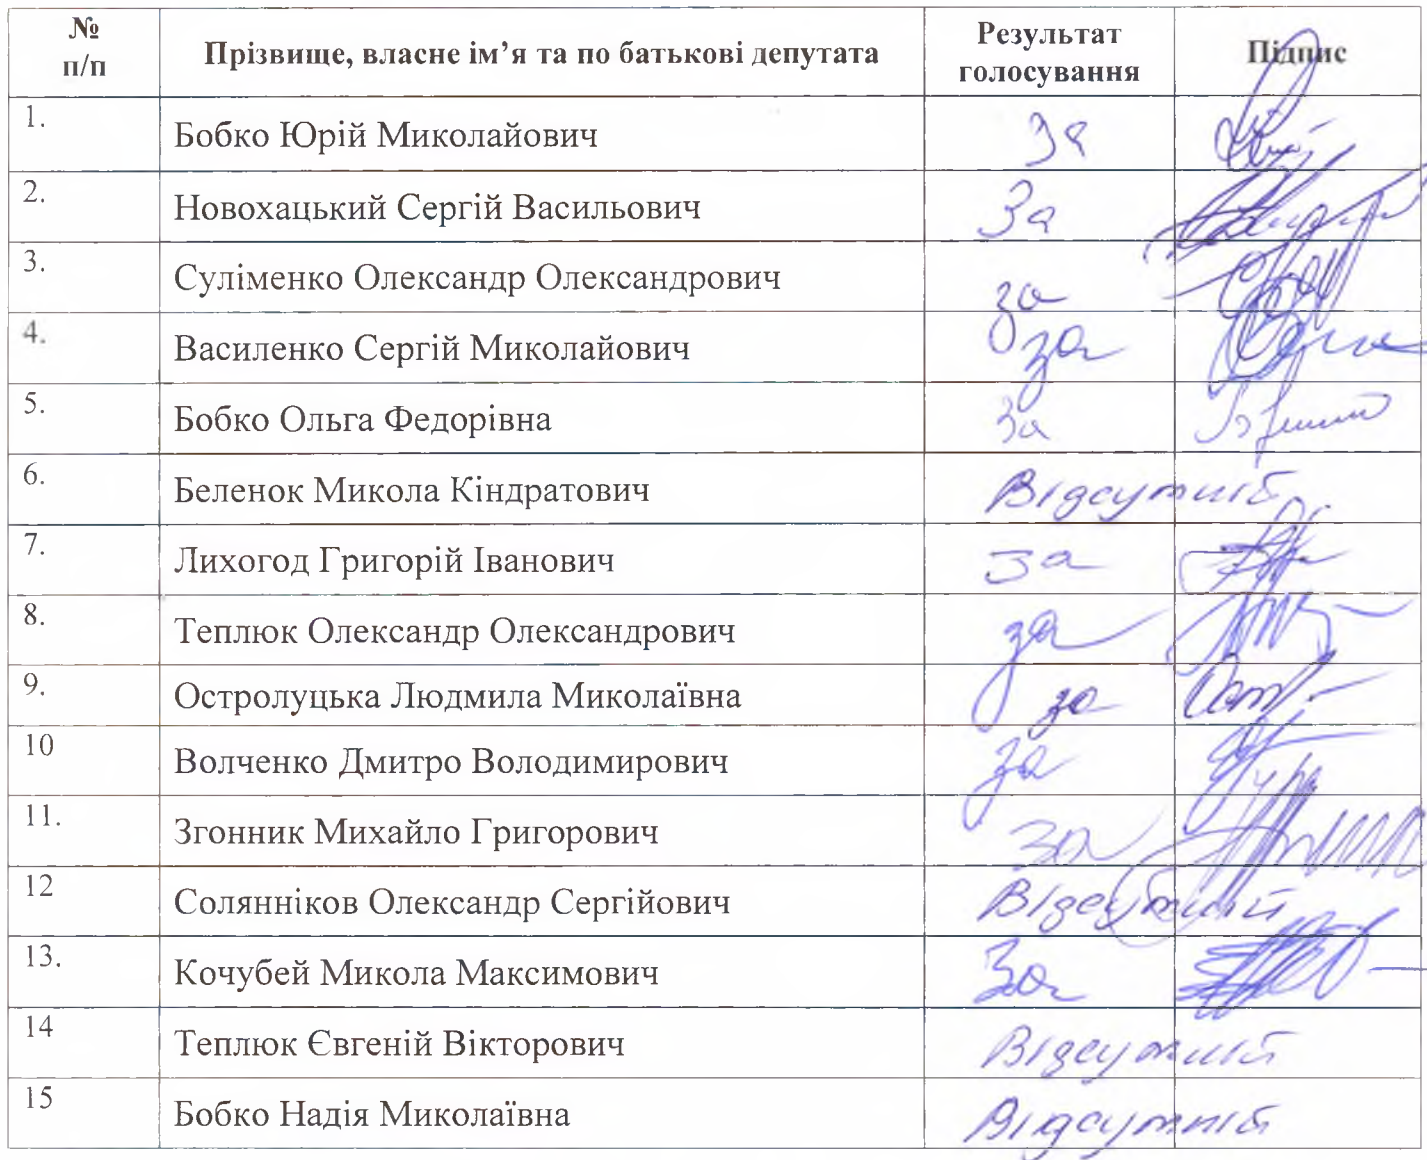 № п/п Прізвище, власне ім’я та по батькові депутата Результат голосування Підпис
1. Бобко Юрій Миколайович За
2. Новохацький Сергій Васильович За
3. Суліменко Олександр Олександрович за
4. Василенко Сергій Миколайович за
5. Бобко Ольга Федорівна За
6. Беленок Микола Кіндратович Відсутній
7. Лихогод Григорій Іванович за
8. Теплюк Олександр Олександрович за
9. Остролуцька Людмила Миколаївна за
10 Волченко Дмитро Володимирович за
11. Згонник Михайло Григорович за
12 Солянніков Олександр Сергійович Відсутній
13. Кочубей Микола Максимович За
14 Теплюк Євгеній Вікторович Відсутній
15 Бобко Надія Миколаївна Відсутній